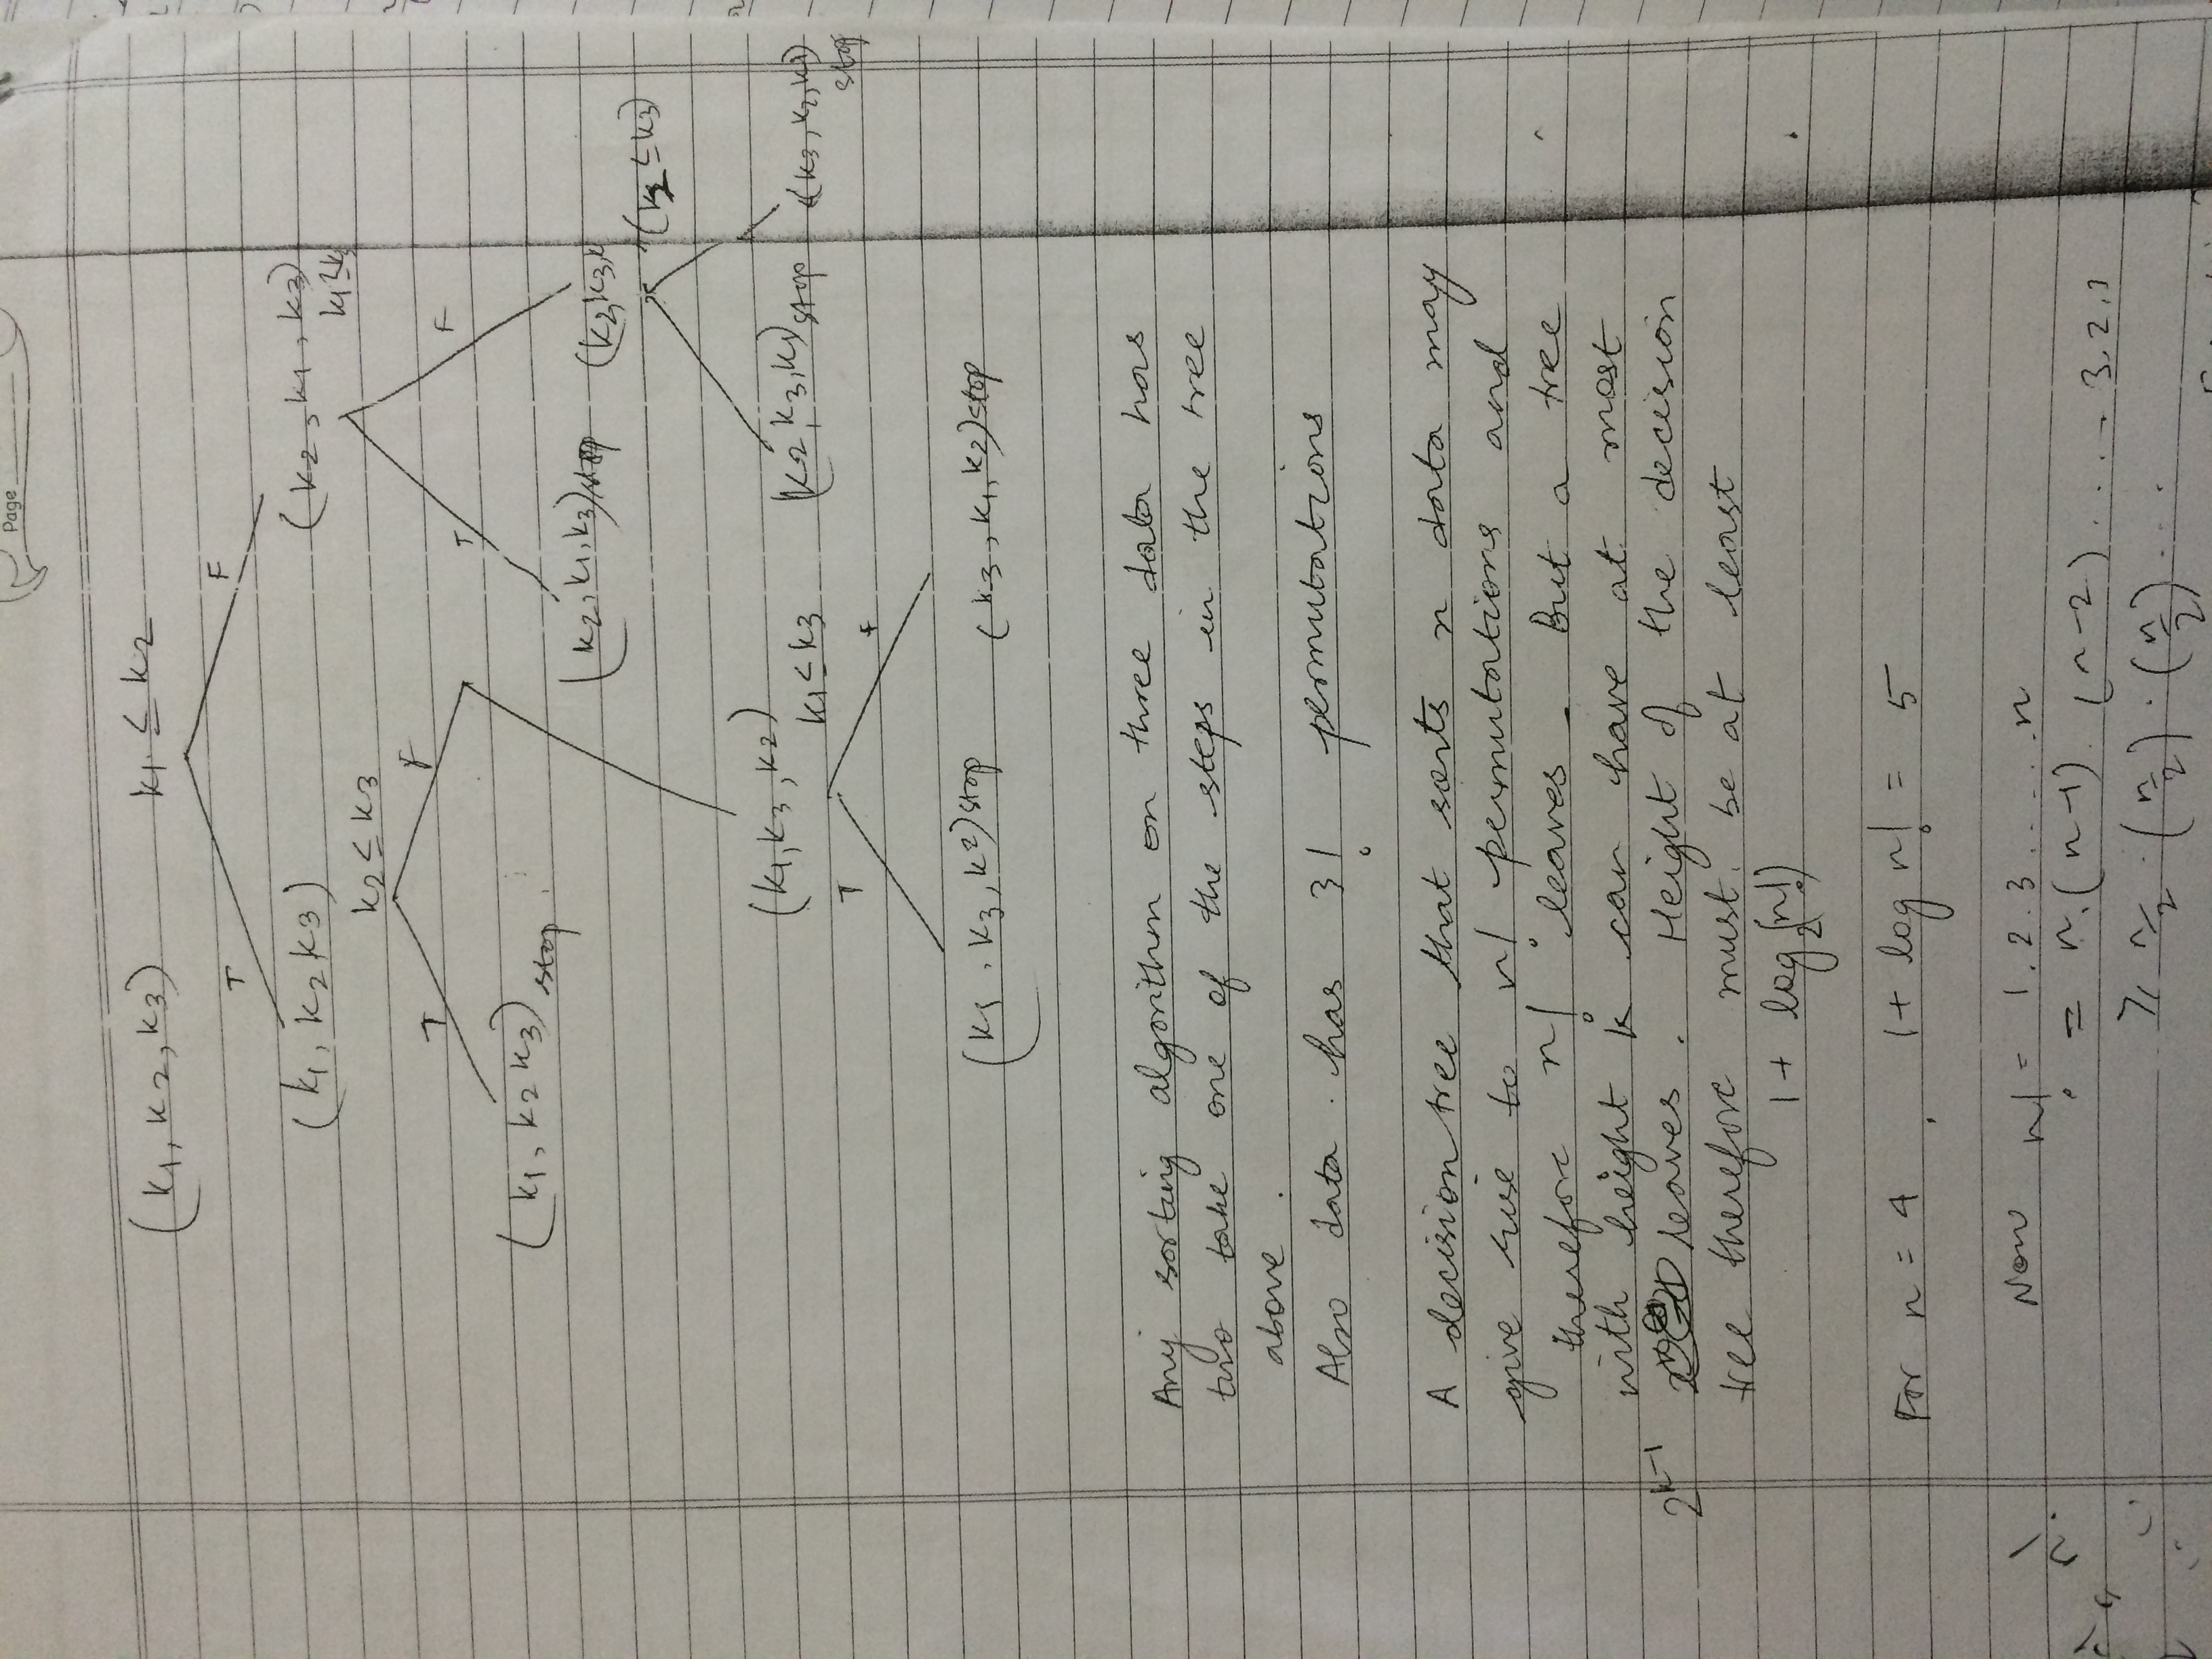 Page
(k1, k2, k3) k1 ≤ k2
T F
(k1, k2 k3) (k2, k1, k3)
k2 ≤ k3
T F T F
(k1, k2 k3) stop
(k2, k1, k3) stop (k2, k3,
(k2 ≤ k3)
(k1, k3, k2)
k1 ≤ k3
(k2, k3, k1) stop (k3, k2, k1)
stop
T F
(k1, k3, k2) stop (k3, k1, k2) stop
Any sorting algorithm on three data has
two take one of the steps in the tree
above.
Also data has 3! permutations
A decision tree that sorts n data may
give rise to n! permutations and
therefore n! leaves. But a tree
with height k can have at most
2^k-1 leaves. Height of the decision
tree therefore must be at least
1 + log2(n!)
For n = 4, 1 + log n! = 5
Now n! = 1.2.3.....n
= n.(n-1).(n-2)..... 3.2.1
≥ n/2 . (n/2) . (n/2)...
n!